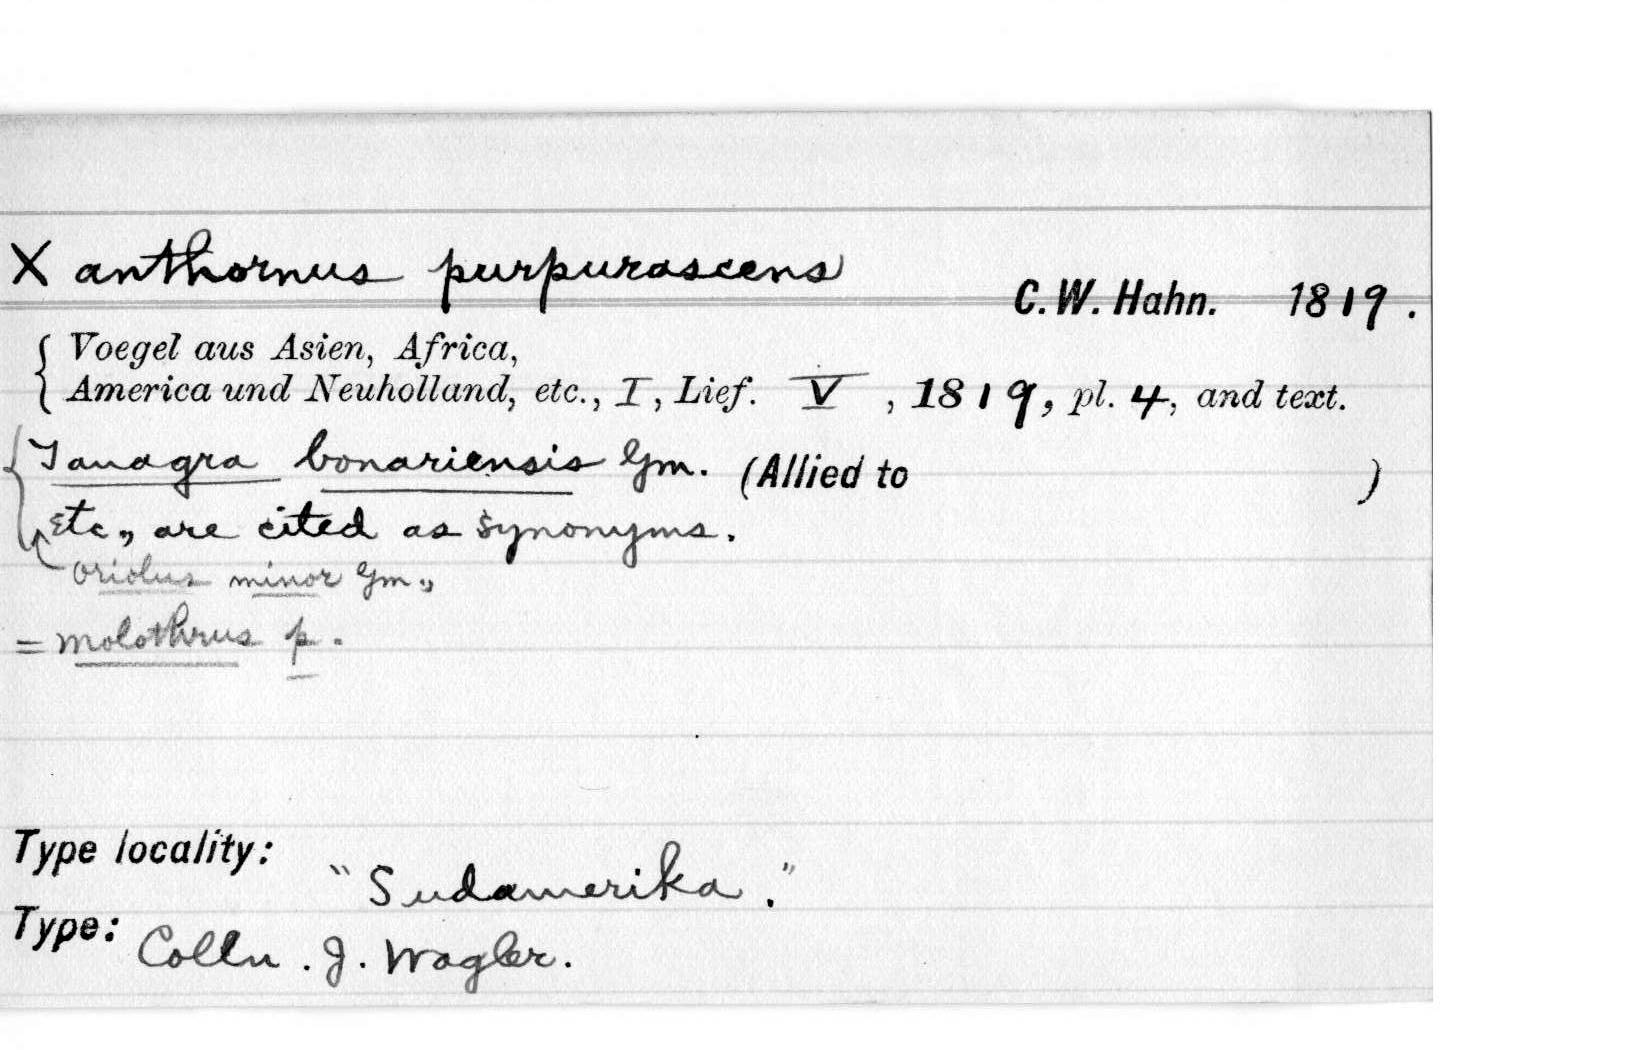 Xanthornus purpurascens
C. W. Hahn. 1819.
Voegel aus Asien, Africa,
America und Neuholland, etc., I, Lief. V, 1819, pl. 4, and text.
Tanagra bonariensis Gm. (Allied to )
Etc., are cited as synonyms.
Oriolus minor Gm.,
= Molothrus p.
Type locality:
"Sudamerika."
Type: Colln. J. Wagler.